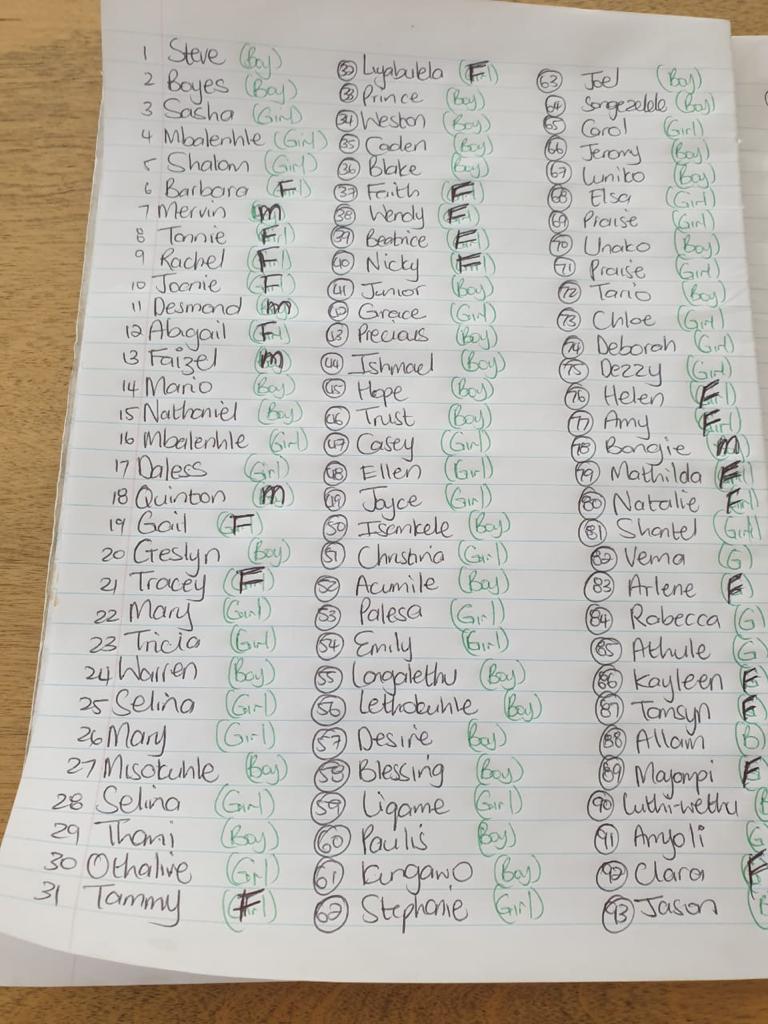 1 Steve (Boy)
2 Boyes (Boy)
3 Sasha (Girl)
4 Mbalenhle (Girl)
5 Shalom (Girl)
6 Barbara F
7 Mervin m
8 Tonnie F
9 Rachel F
10 Joonie F
11 Desmond m
12 Abagail F
13 Faizel m
14 Mario (Boy)
15 Nathaniel (Boy)
16 Mbalenhle (Girl)
17 Daless (Girl)
18 Quinton m
19 Gail F
20 Geslyn (Boy)
21 Tracey F
22 Mary (Girl)
23 Tricia (Girl)
24 Warren (Boy)
25 Selina (Girl)
26 Mary (Girl)
27 Misokuhle (Boy)
28 Selina (Girl)
29 Thani (Boy)
30 Othalive (Girl)
31 Tammy F
32 Luyabulela F
33 Prince (Boy)
34 Weston (Boy)
35 Caden (Boy)
36 Blake (Boy)
37 Faith F
38 Wendy F
39 Beatrice F
40 Nicky F
41 Junior (Boy)
42 Grace (Girl)
43 Precious (Boy)
44 Ishmael (Boy)
45 Hope (Boy)
46 Trust (Boy)
47 Casey (Girl)
48 Ellen (Girl)
49 Joyce (Girl)
50 Isemkele (Boy)
51 Christina (Girl)
52 Acumile (Boy)
53 Palesa (Girl)
54 Emily (Girl)
55 Longalethu (Boy)
56 Lethokuhle (Boy)
57 Desire (Boy)
58 Blessing (Boy)
59 Liqame (Girl)
60 Paulis (Boy)
61 Kungawo (Boy)
62 Stephanie (Girl)
63 Joel (Boy)
64 Songezelele (Boy)
65 Carol (Girl)
66 Jeromy (Boy)
67 Luniko (Boy)
68 Elsa (Girl)
69 Praise (Girl)
70 Unako (Boy)
71 Praise (Girl)
72 Tario (Boy)
73 Chloe (Girl)
74 Deborah (Girl)
75 Dezzy (Girl)
76 Helen F
77 Amy F
78 Bongie m
79 Mathilda F
80 Natalie F
81 Shantel (Girl)
82 Verna (G)
83 Arlene F
84 Robecca (G)
85 Athule (G)
86 Kayleen F
87 Tamsyn F
88 Allam (B)
89 Majompi F
90 Luthi-wethu (B
91 Amyoli G
92 Clara F
93 Jason (B